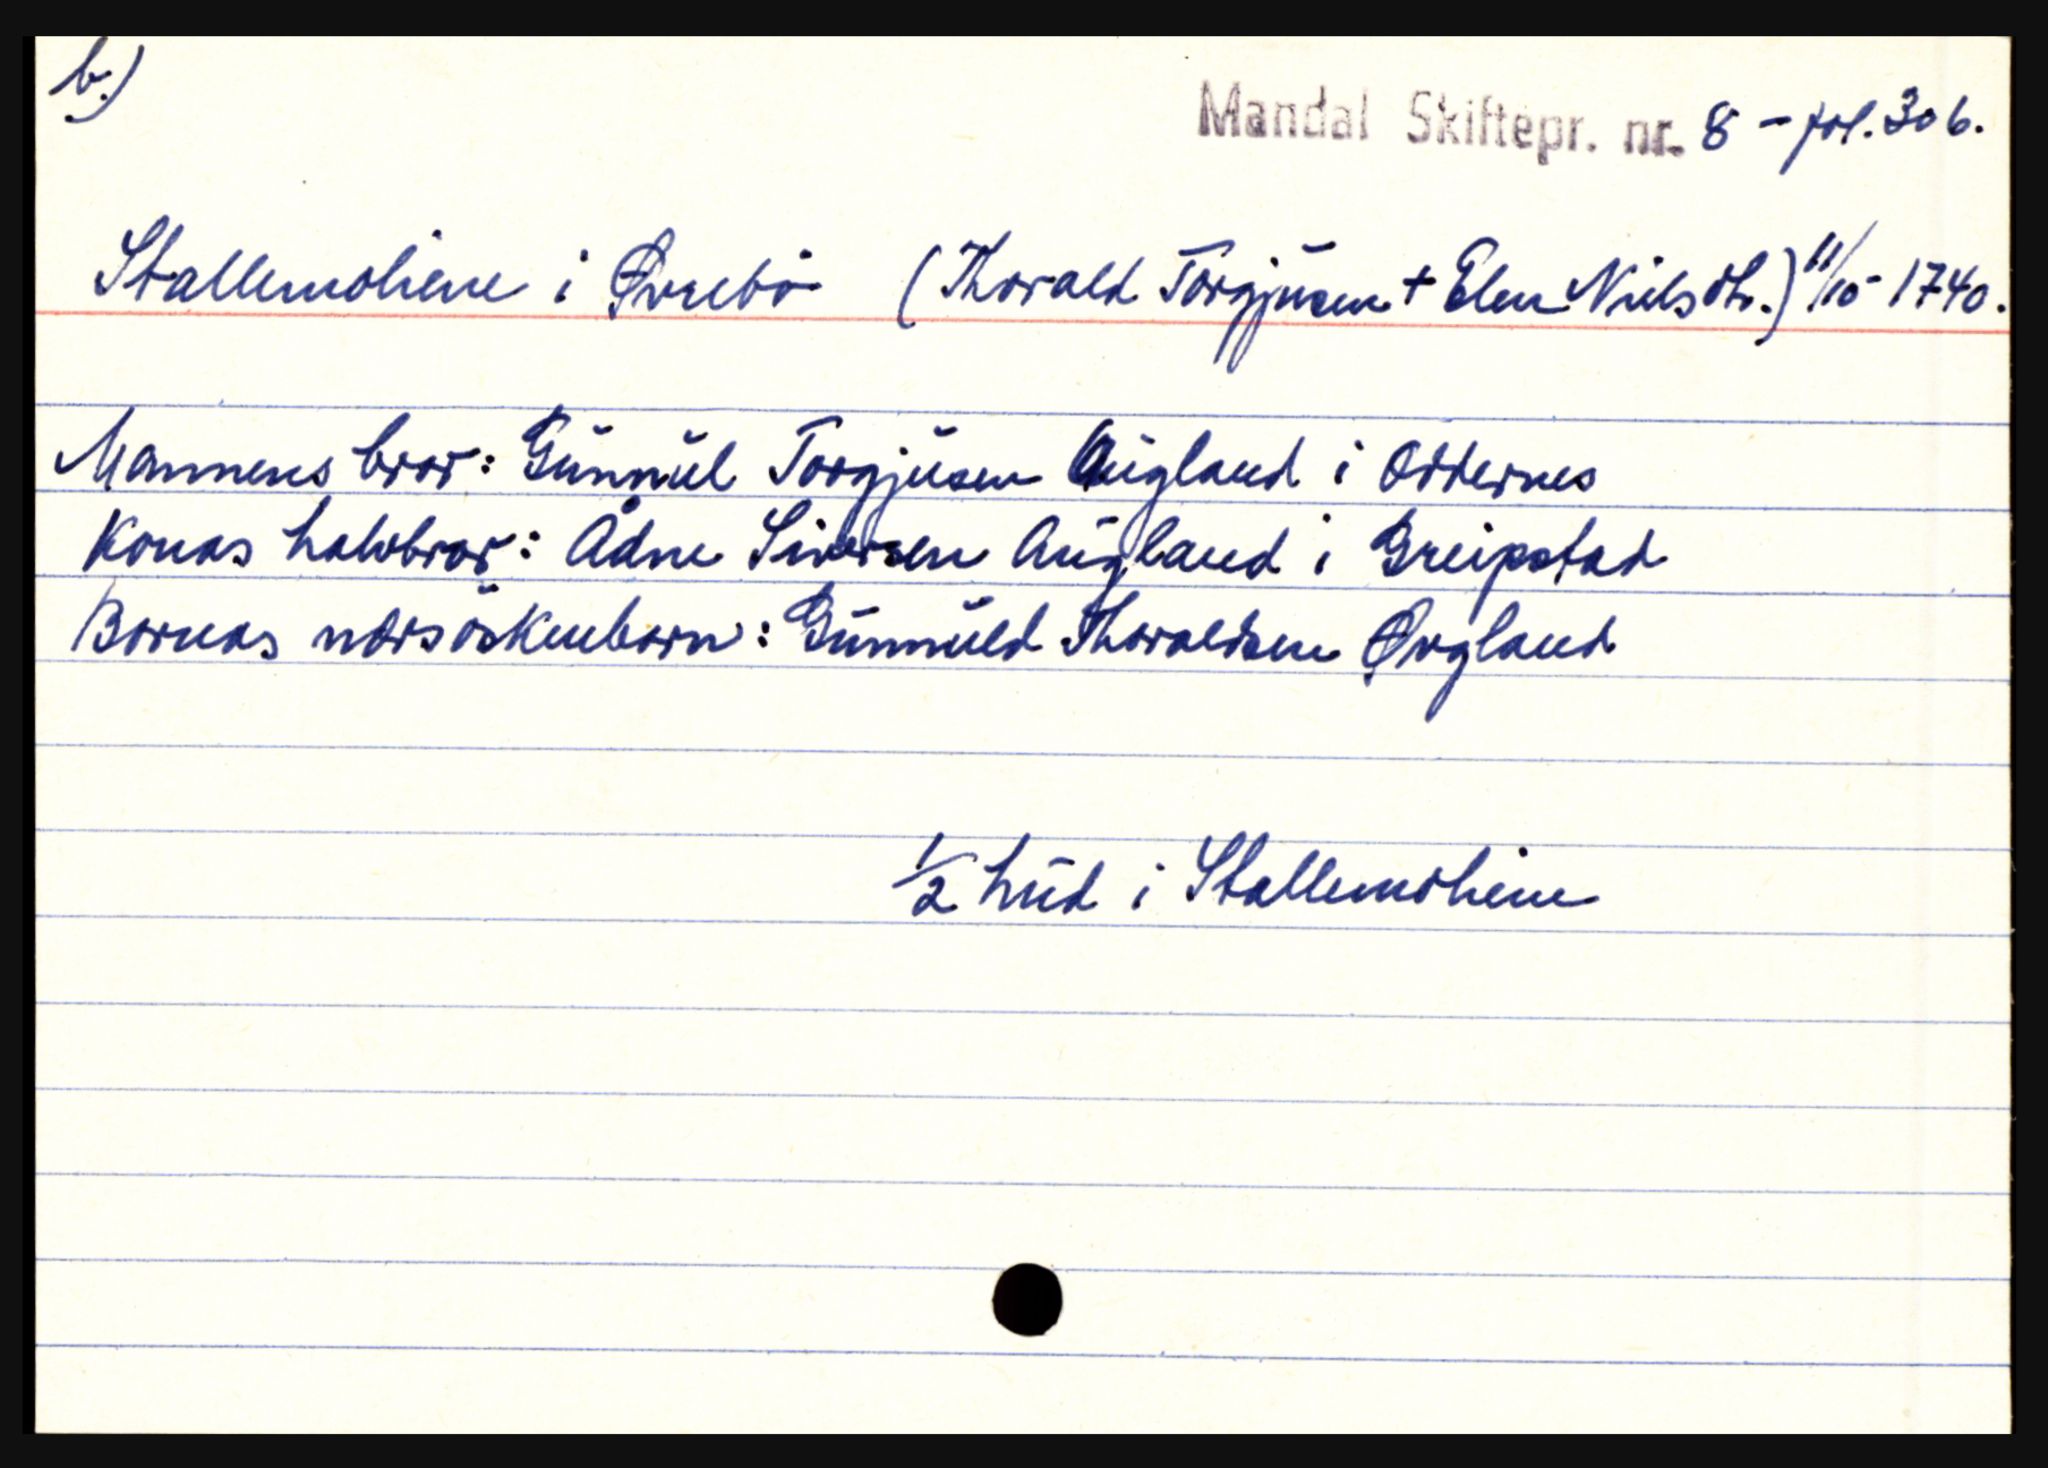 b.)
Mandal Skiftepr. nr. 8 - fol. 306.
Stallemoheine i Øvrebö (Thorald Torgjusen + Elen Nielsdtr.) 11/10 - 1740.
Mannens bror: Gunnul Torgjusen Augland i Oddernes
Konas halvbror: Ådne Siversen Augland i Greipstad
Bornas nærsöskenborn: Gunnuld Thoraldsen Øvgland
1/2 hud i Stallemoheine